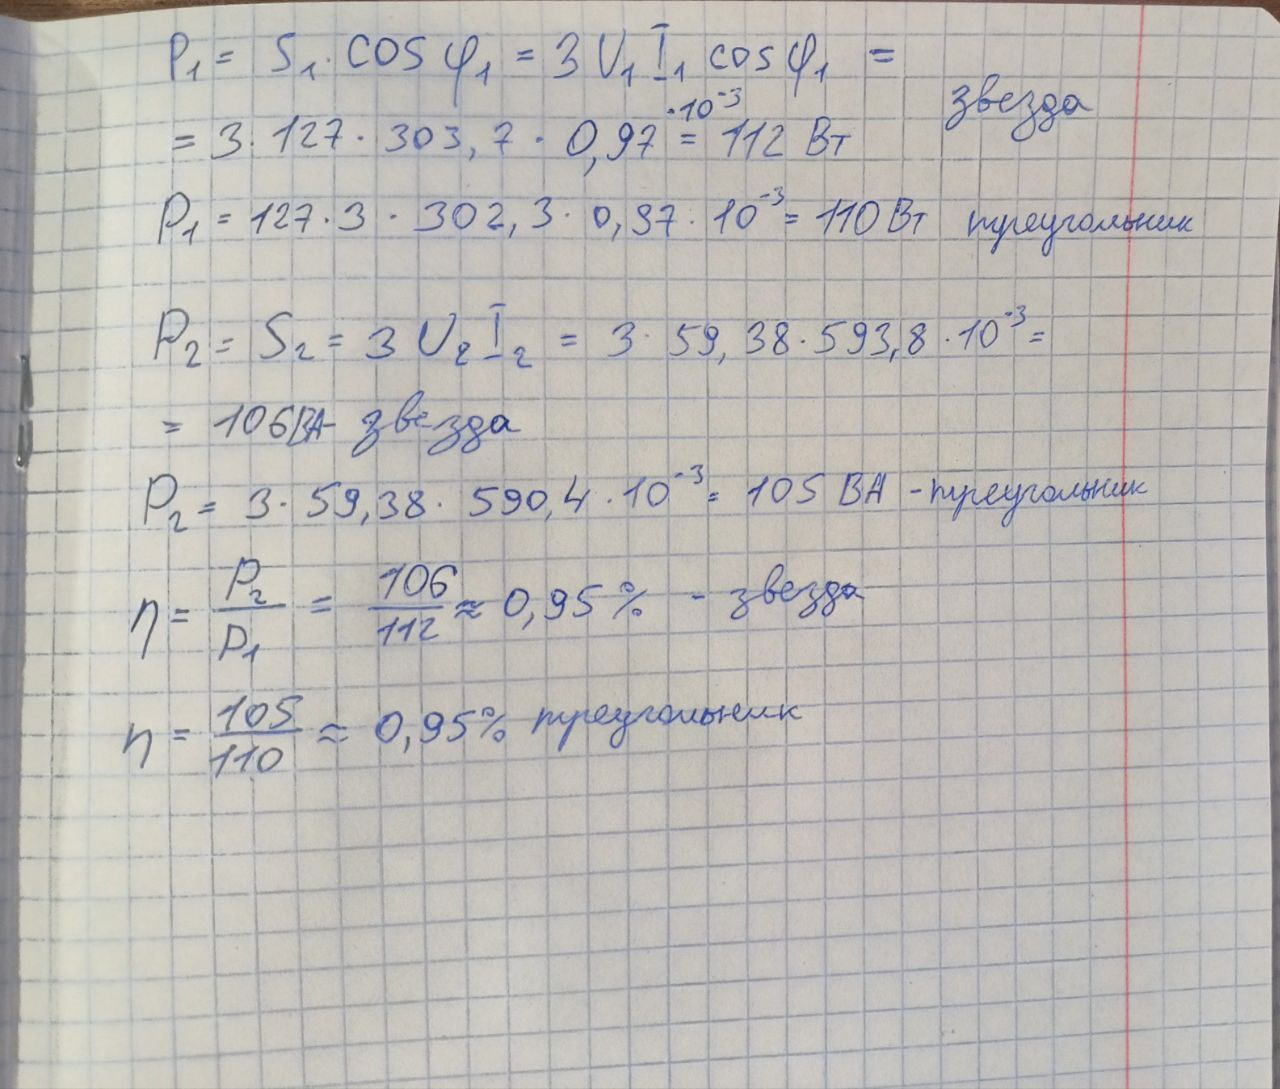 P₁ = S₁ · cos φ₁ = 3 U₁ I₁ cos φ₁ =
= 3 · 127 · 303,7 · 0,97 · 10⁻³ = 112 Вт звезда
P₁ = 127 · 3 · 302,3 · 0,97 · 10⁻³ = 110 Вт треугольник
P₂ = S₂ = 3 U₂ I₂ = 3 · 59,38 · 593,8 · 10⁻³ =
= 106 ВА звезда
P₂ = 3 · 59,38 · 590,4 · 10⁻³ = 105 ВА - треугольник
η = P₂ / P₁ = 106 / 112 ≈ 0,95 % - звезда
η = 105 / 110 ≈ 0,95% треугольник